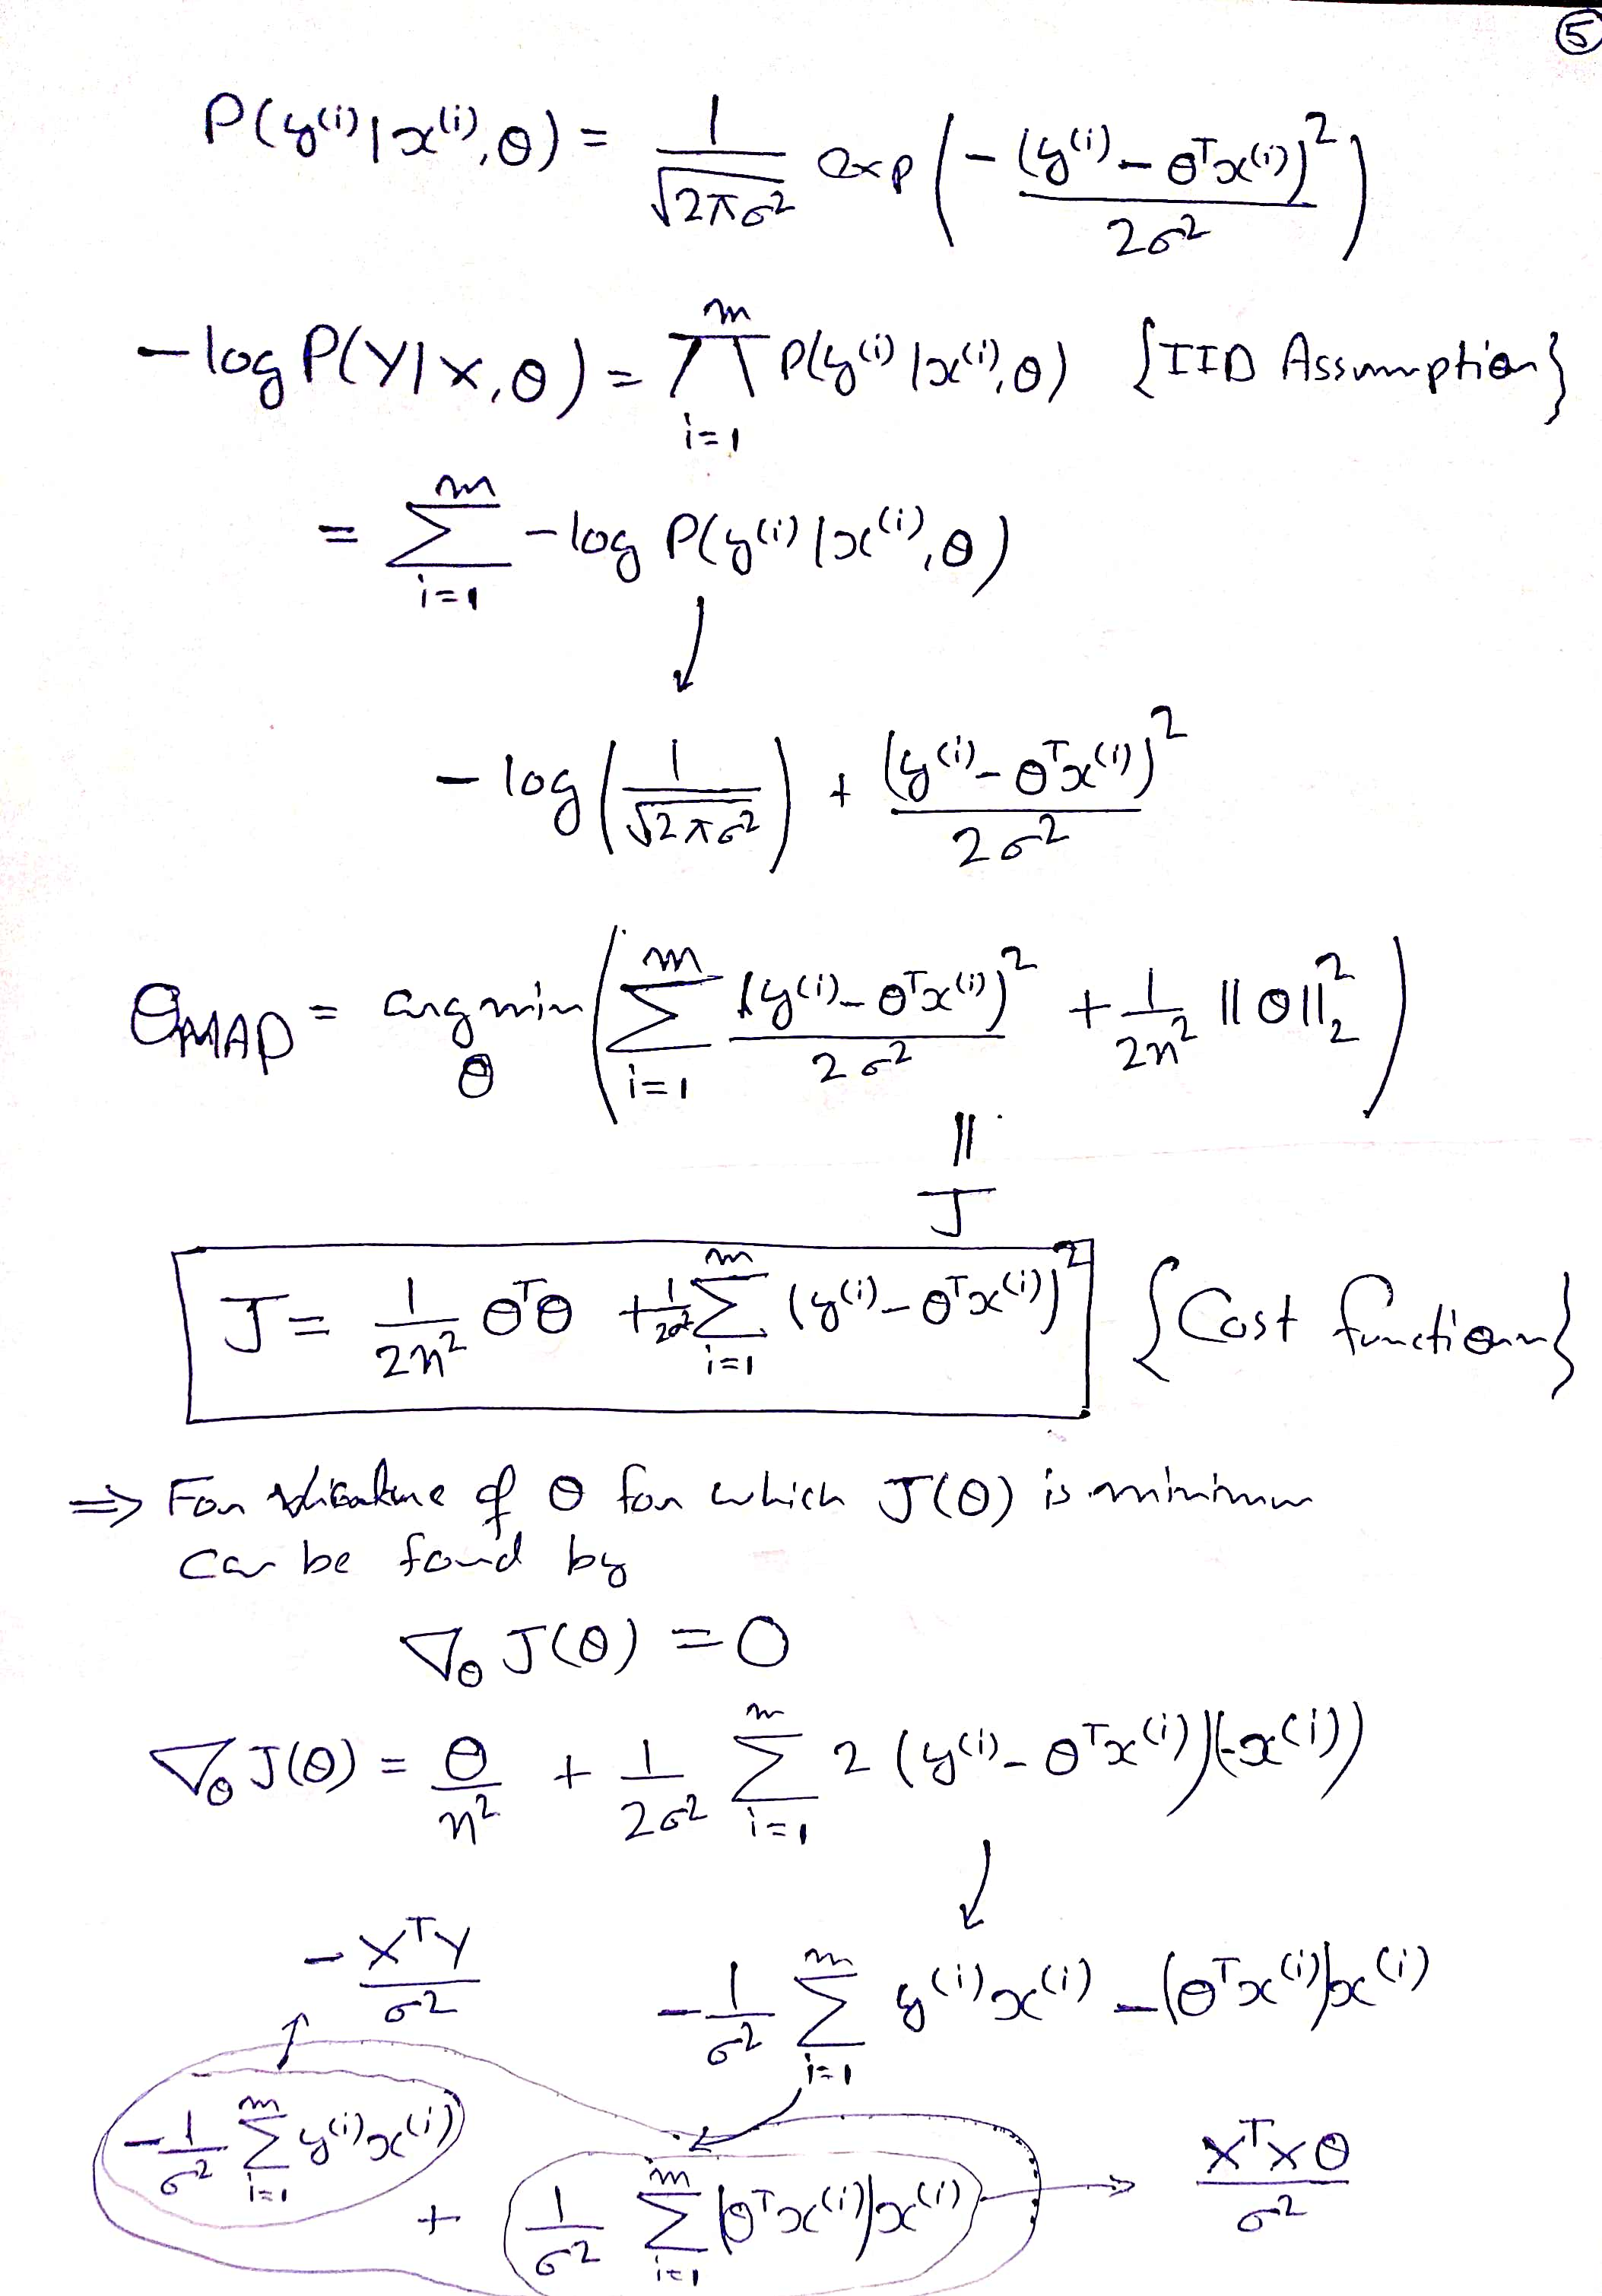 ⑤
P(y⁽ⁱ⁾|x⁽ⁱ⁾,θ) = 1/√(2πσ²) exp(-(y⁽ⁱ⁾-θᵀx⁽ⁱ⁾)²/2σ²)
-log P(Y|X,θ) = ∏ᵢ₌₁ᵐ P(y⁽ⁱ⁾|x⁽ⁱ⁾,θ) {IID Assumption}
= ∑ᵢ₌₁ᵐ -log P(y⁽ⁱ⁾|x⁽ⁱ⁾,θ)
↓
-log(1/√(2πσ²)) + (y⁽ⁱ⁾-θᵀx⁽ⁱ⁾)²/2σ²
θ_MAP = argmin_θ (∑ᵢ₌₁ᵐ (y⁽ⁱ⁾-θᵀx⁽ⁱ⁾)²/2σ² + 1/2η² ||θ||₂²)
||
J
J = 1/2η² θᵀθ + 1/2σ² ∑ᵢ₌₁ᵐ (y⁽ⁱ⁾-θᵀx⁽ⁱ⁾)² {Cost function}
⇒ For of θ for which J(θ) is minimum
can be found by
∇_θ J(θ) = 0
∇_θ J(θ) = θ/η² + 1/2σ² ∑ᵢ₌₁ᵐ 2(y⁽ⁱ⁾-θᵀx⁽ⁱ⁾)(-x⁽ⁱ⁾)
↓
-XᵀY/σ²
-1/σ² ∑ᵢ₌₁ᵐ y⁽ⁱ⁾x⁽ⁱ⁾ - (θᵀx⁽ⁱ⁾)x⁽ⁱ⁾
-1/σ² ∑ᵢ₌₁ᵐ y⁽ⁱ⁾x⁽ⁱ⁾
+ 1/σ² ∑ᵢ₌₁ᵐ (θᵀx⁽ⁱ⁾)x⁽ⁱ⁾ → XᵀXθ/σ²